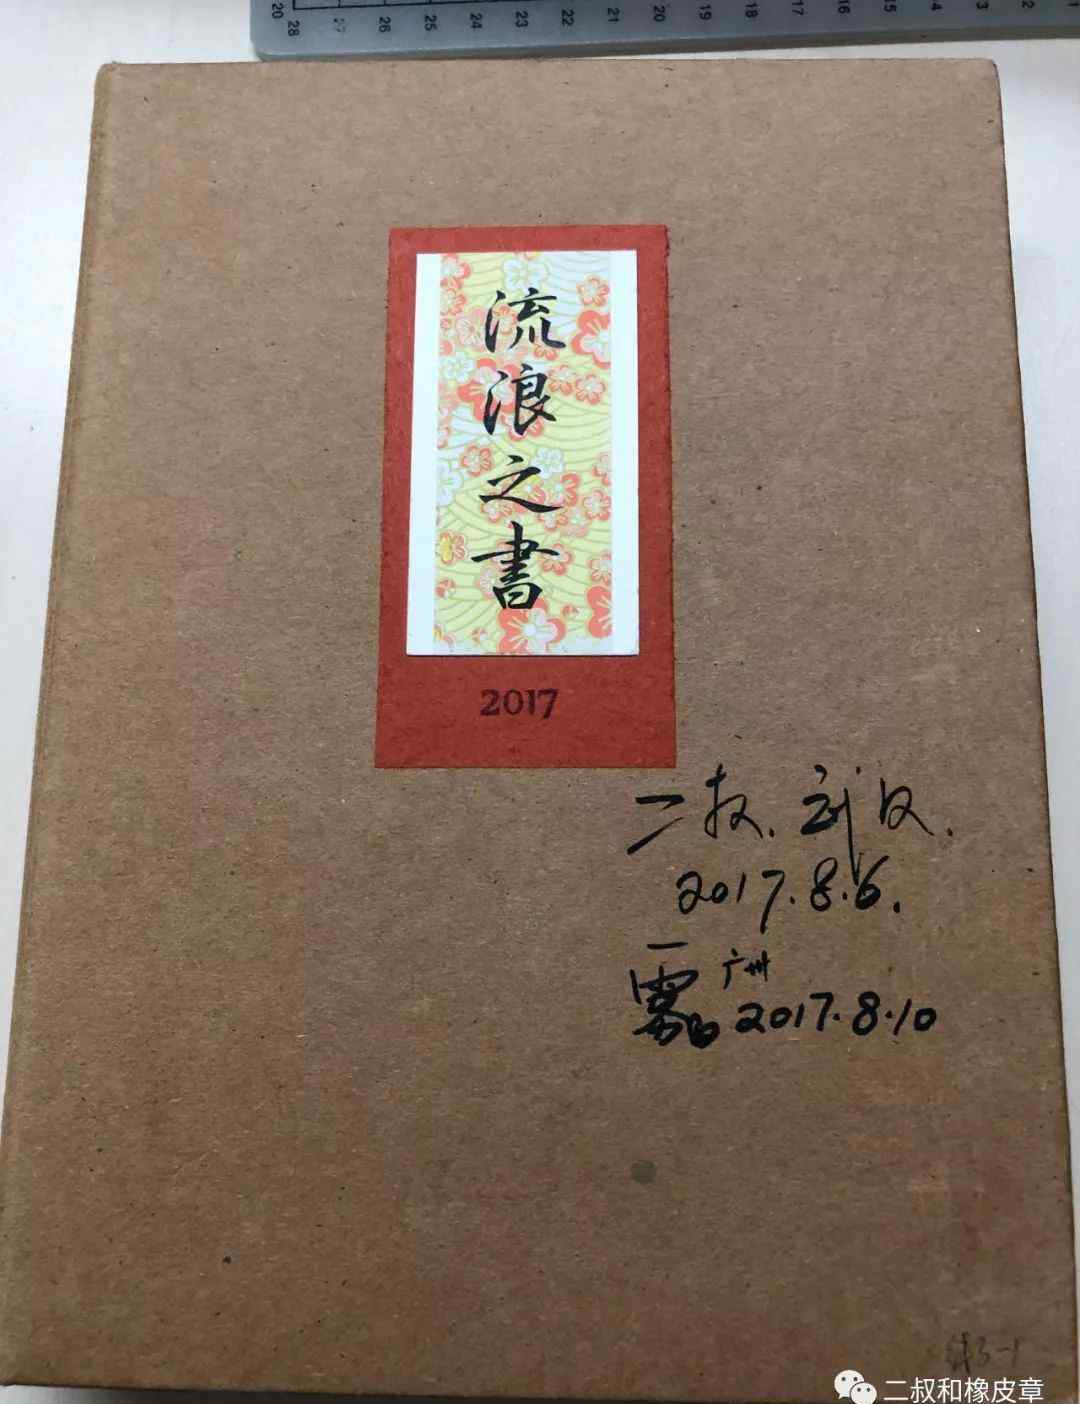 20 28 27 26 25 24 23 22 21 20 19 18 17 16 15 14 13 12 11
流浪之書
2017
二叔.武汉.
2017.8.6.
广州
2017.8.10
3-1
二叔和橡皮章